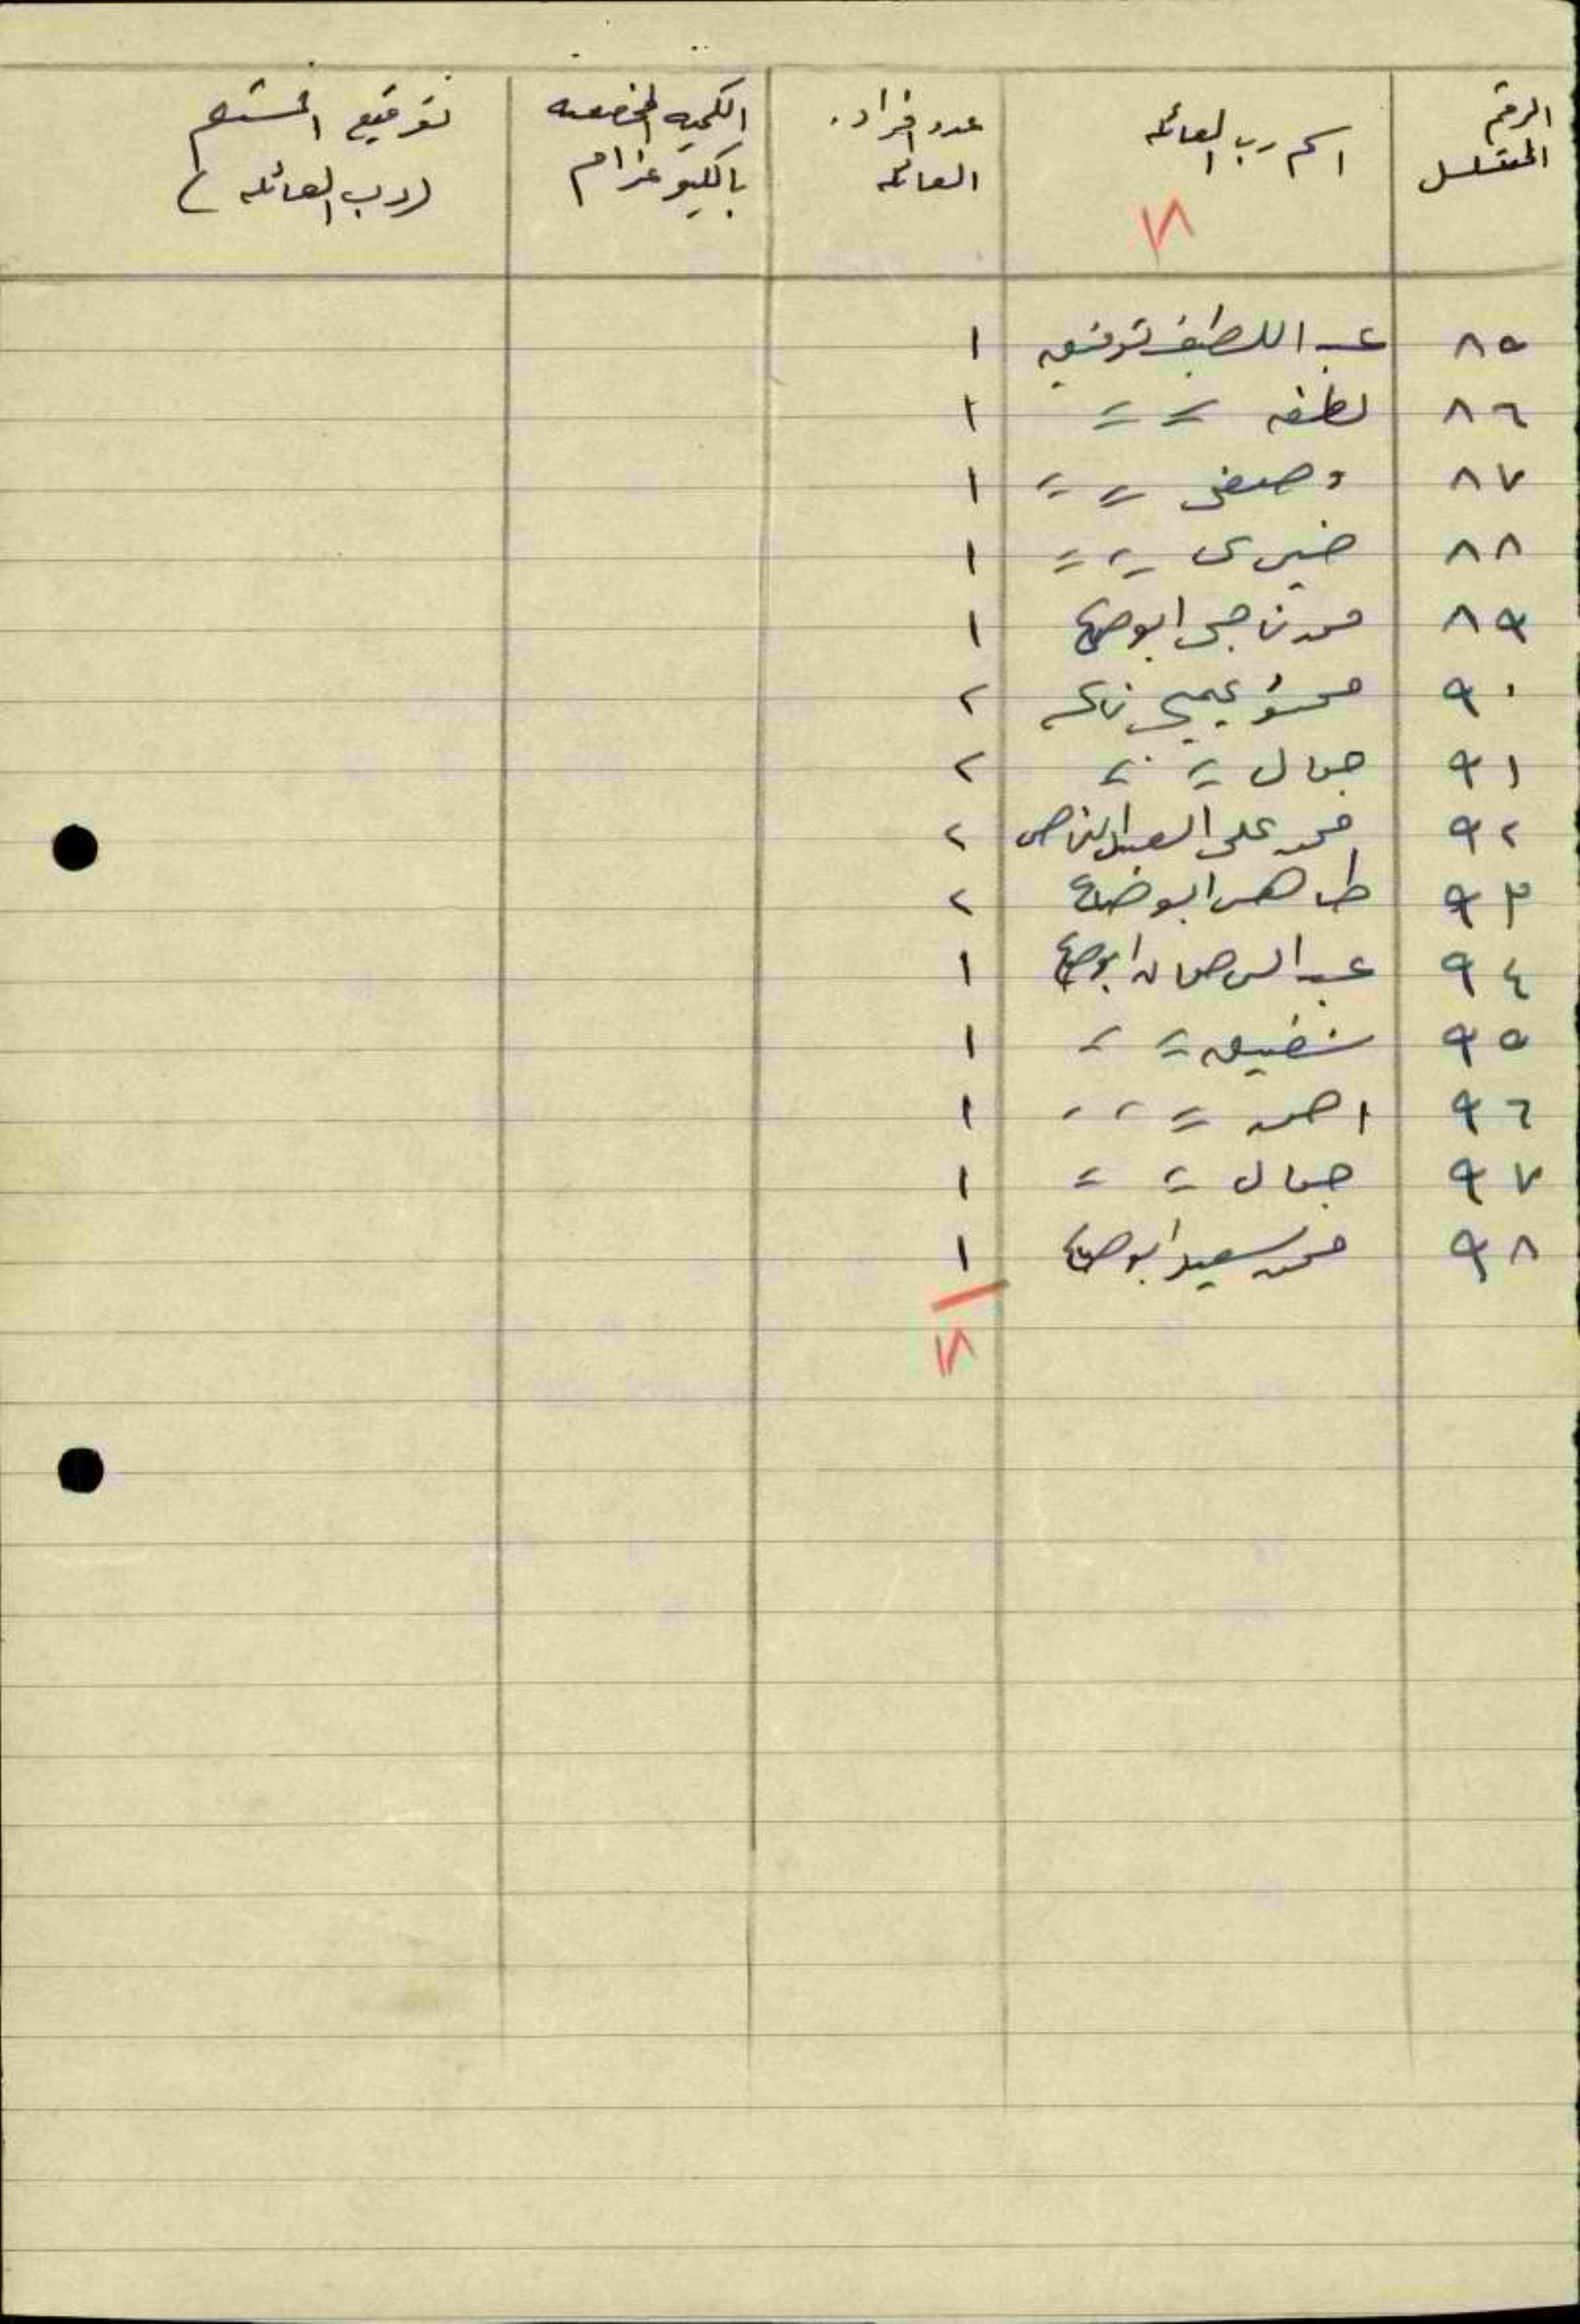 الرقم المتسلسل | اسم رب العائله | عدد افراد العائله | الكميه المخصصه بالكيلو غرام | توقيع المستلم (رب العائله)
١٨
٨٥ عبد اللطيف توفيق ١
٨٦ لطفه = = ١
٨٧ وصفي = = ١
٨٨ خيري = = ١
٨٩ محمد ناجي ابو صاع ١
٩٠ ٢
٩١ جمال = = ٢
٩٢ محمد علي العبد الناصر ٢
٩٣ طاهر ابو صاع ٢
٩٤ عبد الرحمان ابو صاع ١
٩٥ شفيق = = ١
٩٦ احمد = = ١
٩٧ جمال = = ١
٩٨ محمد سعيد ابو صاع ١
١٨